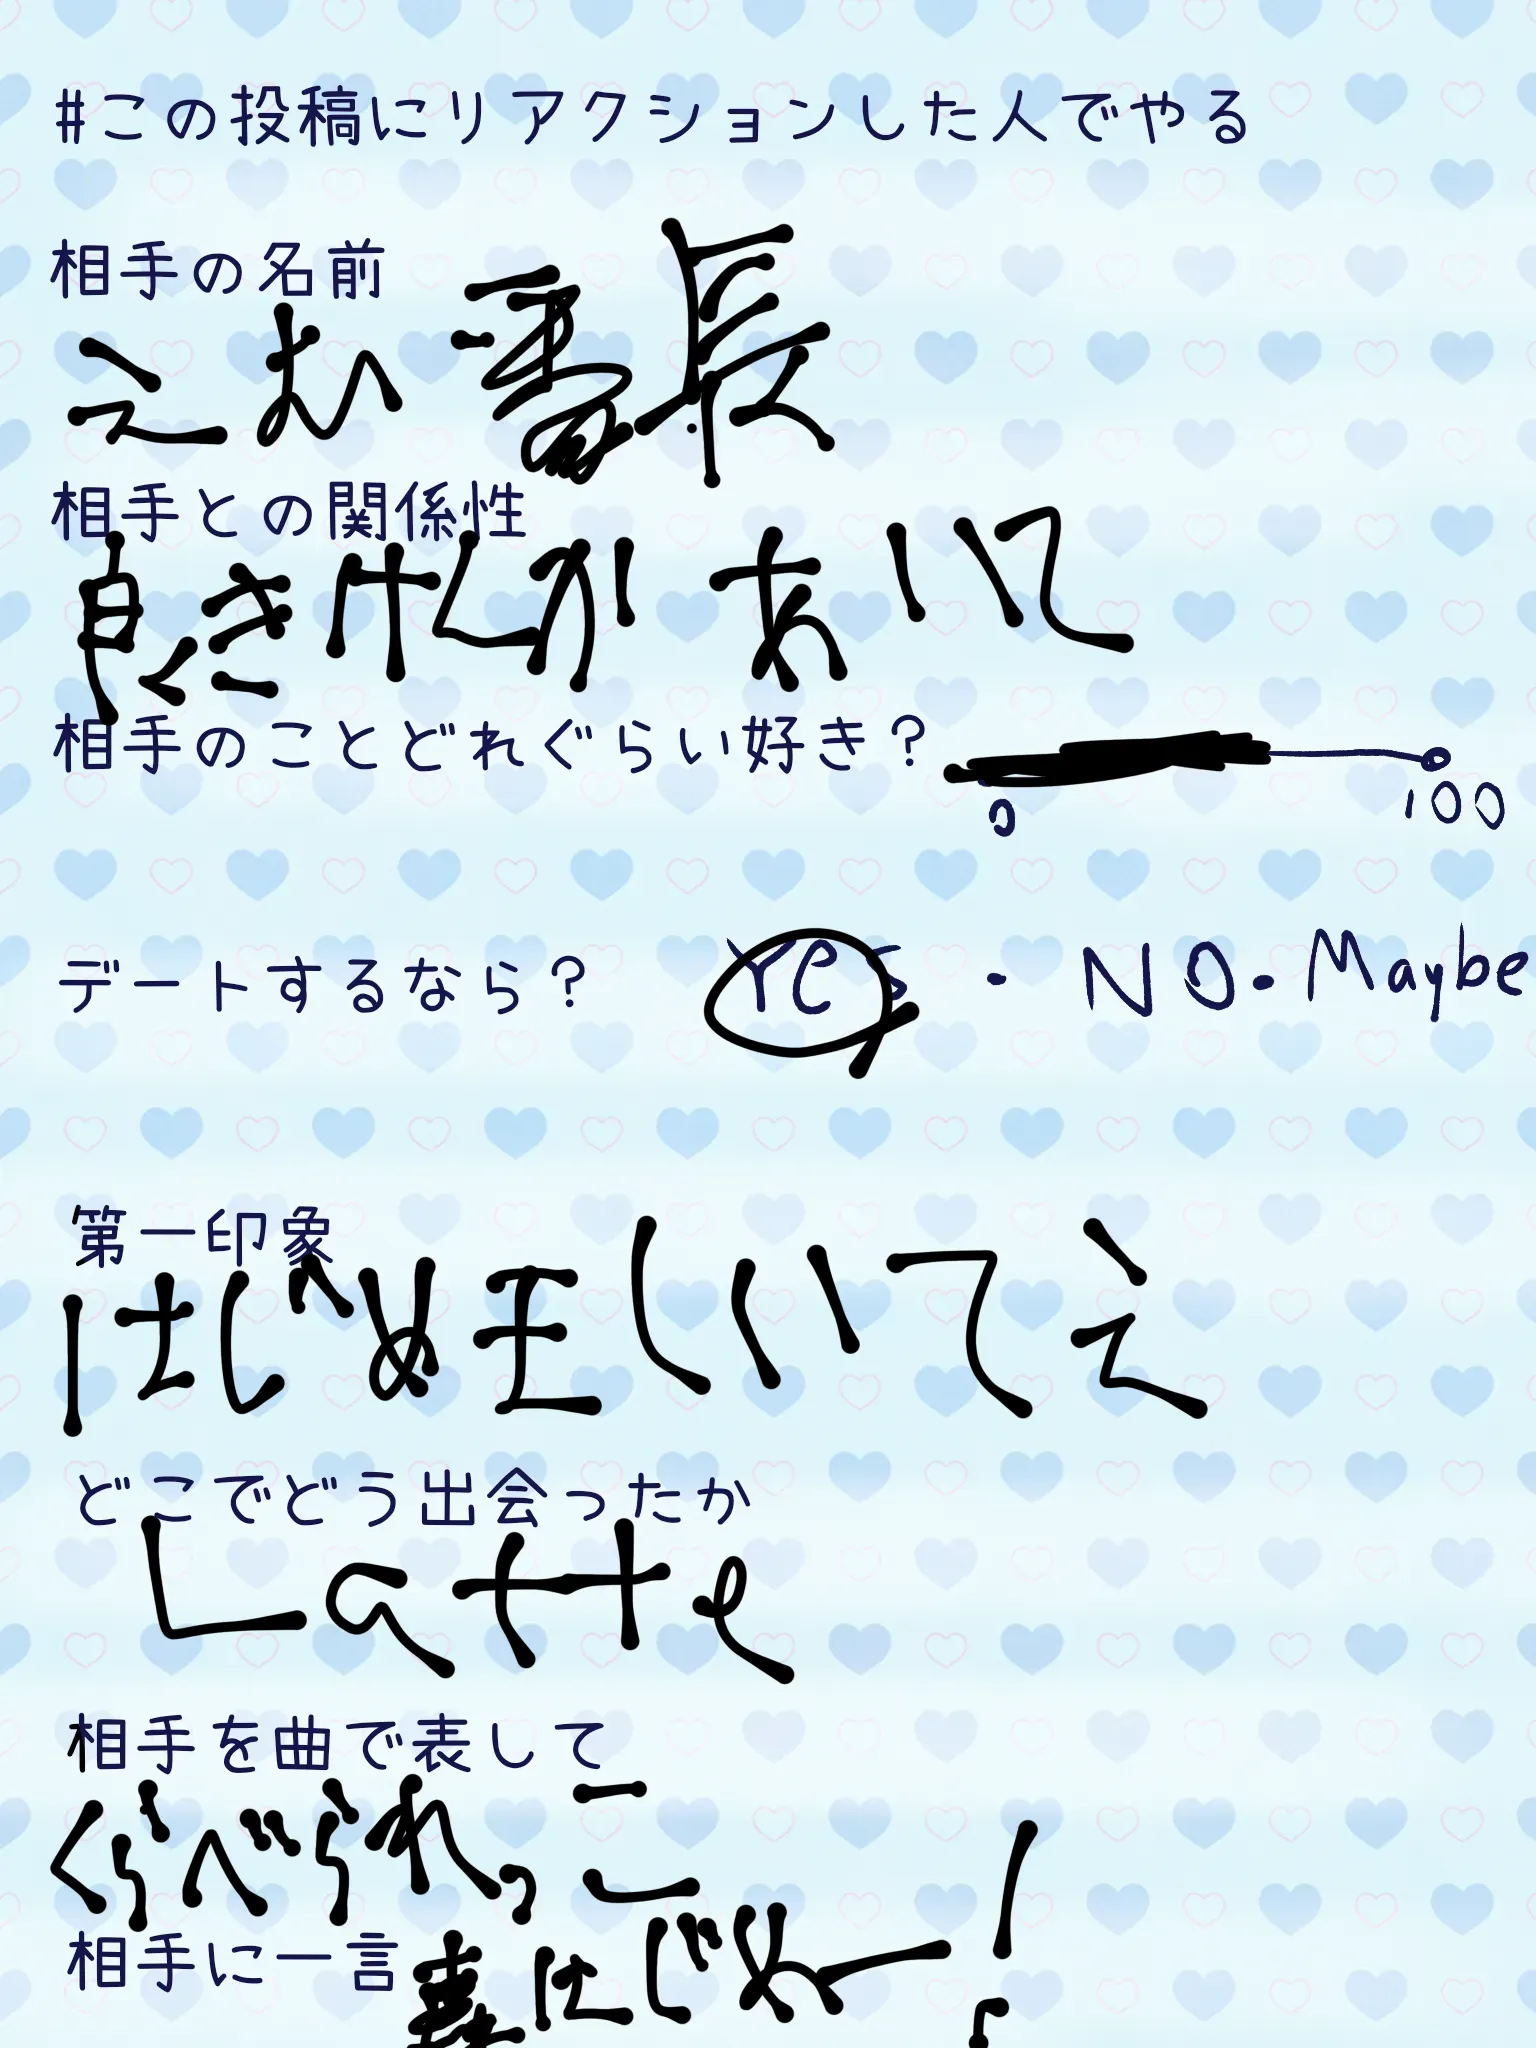 #この投稿にリアクションした人でやる
相手の名前
えむ番長
相手との関係性
良きけんかあいて
相手のことどれぐらい好き?
0 100
デートするなら? Yes・NO・Maybe
第一印象
はじめましていてえ
どこでどう出会ったか
Latte
相手を曲で表して
くらべられっこ
相手に一言